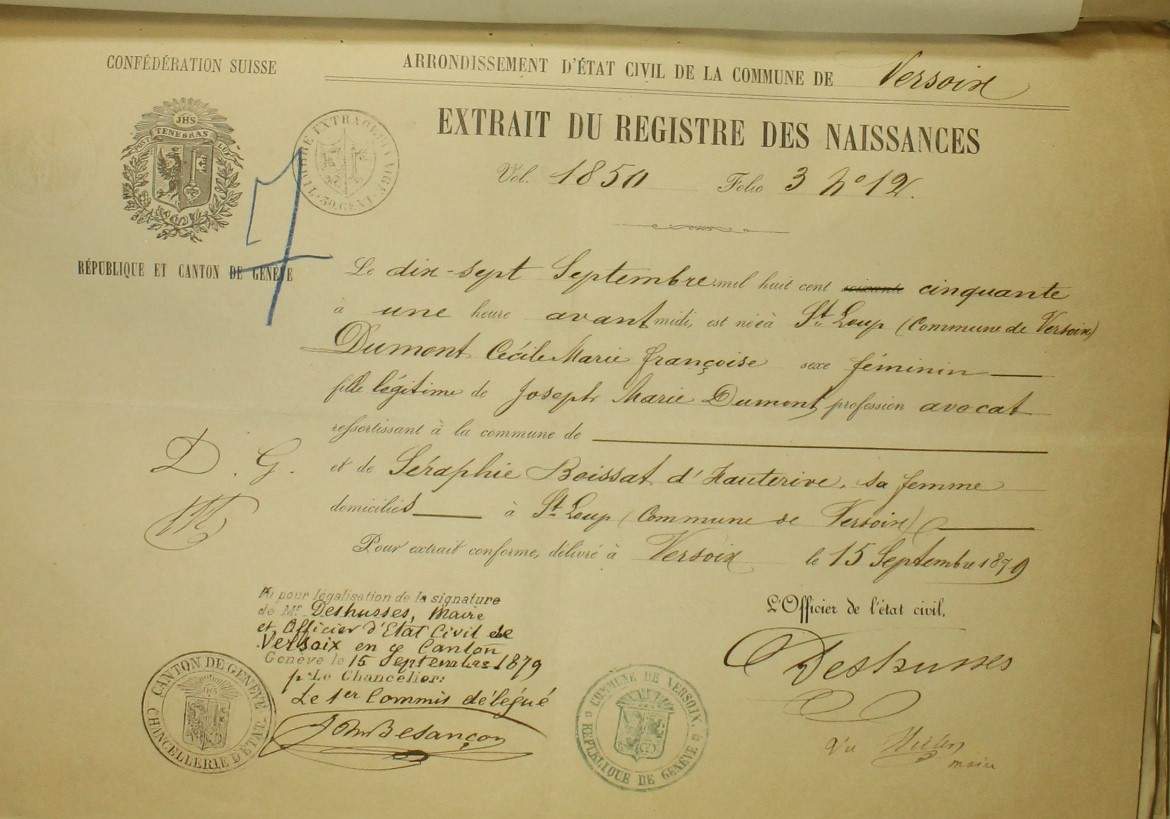 CONFÉDÉRATION SUISSE
ARRONDISSEMENT D'ÉTAT CIVIL DE LA COMMUNE DE Versoix
JHS
POST TENEBRAS LUX
EXTRAIT DU REGISTRE DES NAISSANCES
Vol. 1850 Folio 3 No 12.
7
RÉPUBLIQUE ET CANTON DE GENÈVE
Le dix-sept Septembre mil huit cent soixante cinquante
à une heure avant midi, est née à St. Loup (Commune de Versoix)
Dumont Cécile Marie Françoise sexe féminin
fille légitime de Joseph Marie Dumont, profession avocat
ressortissant à la commune de
D. G. et de Séraphie Boissat d'Hauterive, sa femme
domiciliés à St. Loup (Commune de Versoix)
Pour extrait conforme, délivré à Versoix le 15 Septembre 1879
L'Officier de l'état civil.
Deshusses
Vu pour légalisation de la signature
de Mr Deshusses, Maire
et Officier d'Etat Civil de
Versoix en ce Canton
Genève le 15 Septembre 1879
p. Le Chancelier:
Le 1er Commis délégué
John Besançon
CANTON DE GENÈVE.
CHANCELLERIE D'ÉTAT.
COMMUNE DE VERSOIX.
RÉPUBLIQUE DE GENÈVE
Vu
maire